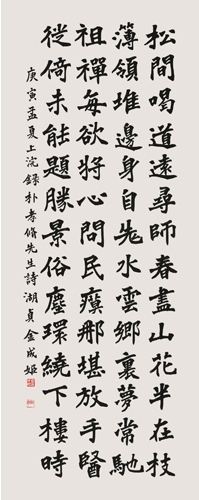 松間喝道遠尋師春盡山花半在枝
薄領堆邊身自先水雲鄉裏夢常馳
祖禪每欲将心問民瘼那堪放手醫
徙倚未能題勝景俗塵環繞下樓時
庚寅孟夏上浣錄朴孝脩先生詩 湖貞金成姬